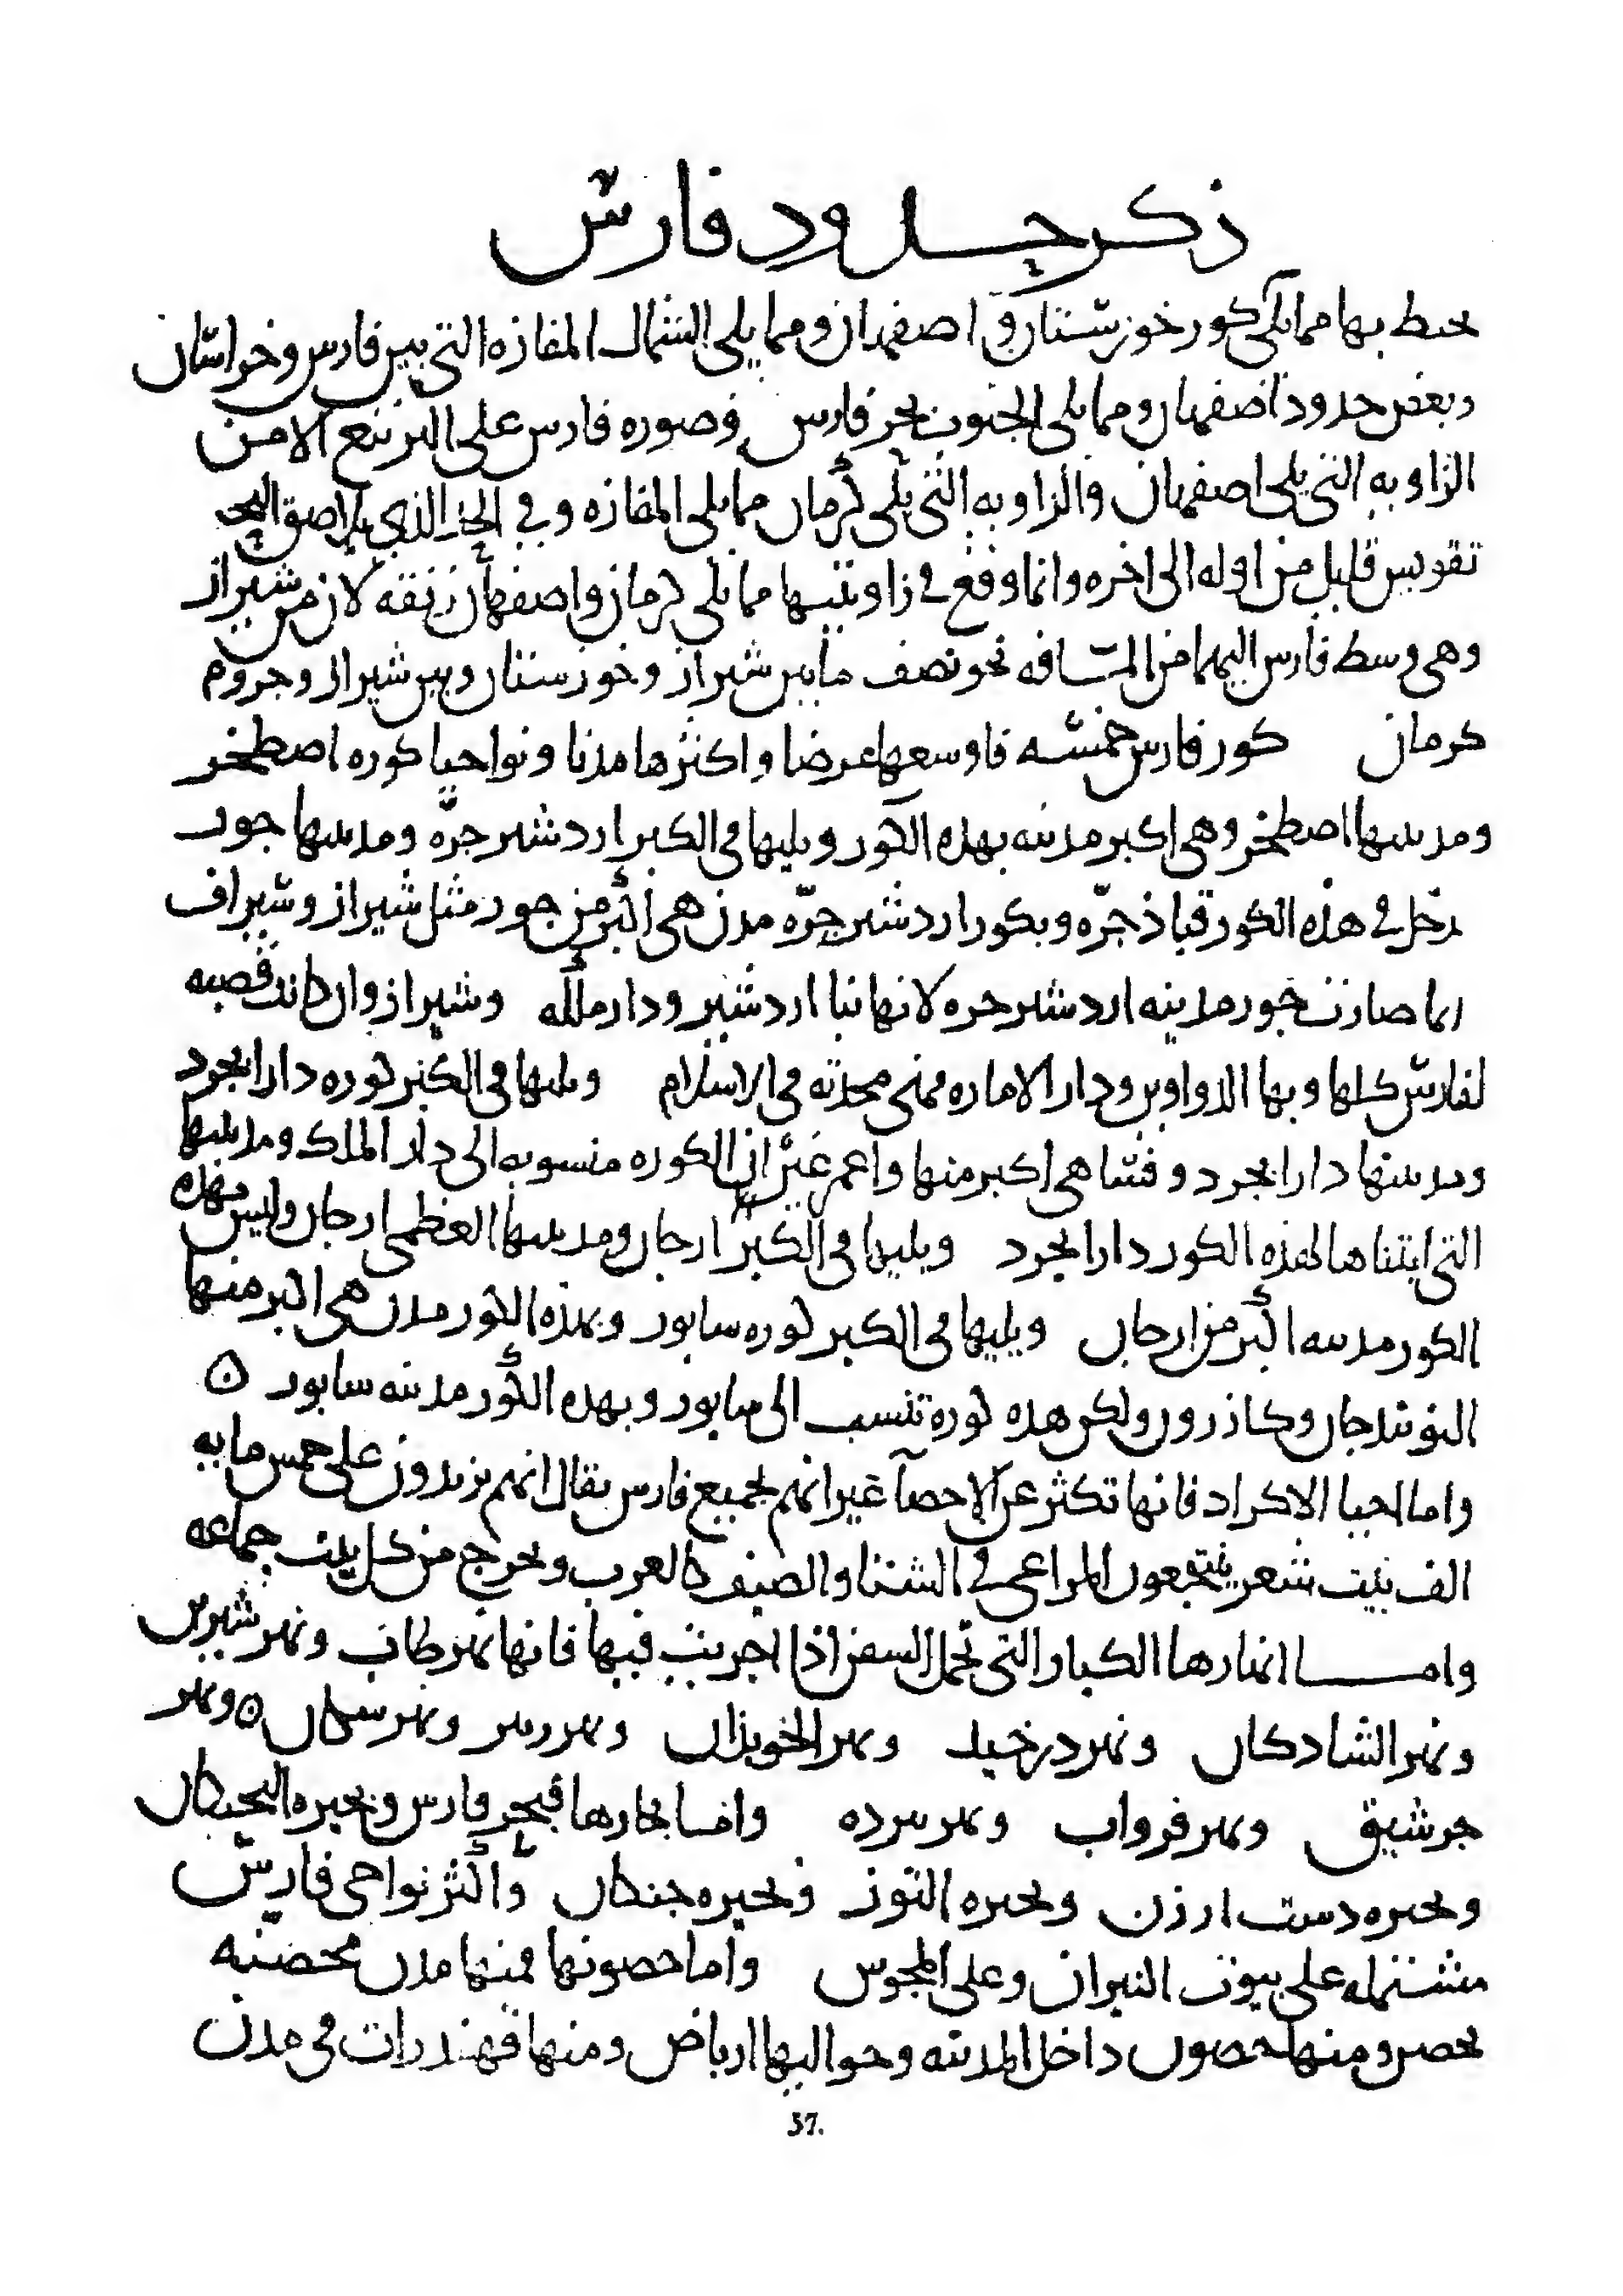 ذكر حدود فارس
يحيط بها مما يلي كور خوزستان و اصفهان ومما يلي الشمال المفازه التي بين فارس وخراسان
وبعض حدود اصفهان ومما يلي الجنوب بحر فارس وصوره فارس على التربيع الا من
الزاويه التي يلي اصفهان والزاويه التي يلي كرمان مما يلي المفازه وفي الحد الذي يلاصق البحر
تقويس قليل من اوله الى اخره وانما وقع في زاويتيها مما يلي كرمان واصفهان زنقه لان من شيراز
وهي وسط فارس اليهما من المسافه نحو نصف ما بين شيراز وخوزستان وبين شيراز وجروم
كرمان كور فارس خمسه فاوسعها عرضا واكثرها مدنا ونواحيا كوره اصطخر
ومدينتها اصطخر وهي اكبر مدينه بهذه الكور ويليها في الكبر اردشير خره ومدينتها جور
يدخل في هذه الكور قباذ خره وبكور اردشير خره مدن هي اكبر من جور مثل شيراز وسيراف
انما صارت جور مدينه اردشير خره لانها بنا اردشير ودار ملكه وشيراز وان كانت قصبه
لفارس كلها وبها الدواوين ودار الاماره فهي محدثه في الاسلام ويليها في الكبر كوره دارابجرد
ومدينتها دارابجرد وفسا هي اكبر منها واعمر غير ان الكوره منسوبه الى دار الملك ومدينتها
التي ابتناها لهذه الكور دارابجرد ويليها في الكبر ارجان ومدينتها العظمى ارجان وليس بهذه
الكور مدينه اكبر من ارجان ويليها في الكبر كوره سابور وبهذه الكور مدن هي اكبر منها
النوبندجان وكازرون ولكن هذه كوره تنسب الى سابور وبهذه الكور مدينه سابور ٥
واما احيا الاكراد فانها تكثر عن الاحصآ غير انهم بجميع فارس يقال انهم يزيدون على خمس مايه
الف بيت شعر ينتجعون المراعي في الشتا والصيف كالعرب ويخرج من كل بيت جماعه
وامــا انهارها الكبار التي تحمل السفن اذا اجريت فيها فانها نهر طاب ونهر شيرين
ونهر الشادكان ونهر درخيد ونهر الخوبذان ونهر رتين ونهر سكان ٥ ونهر
جرشيق ونهر فرواب ونهر برده واما بحارها فبحر فارس وبحيره البختكان
وبحيره دست ارزن وبحيره التوز وبحيره جنكان واكثر نواحي فارس
مشتمله على بيوت النيران وعلى المجوس واما حصونها فمنها مدن محصنه
بحصن ومنها حصون داخل المدينه وحواليها ارباض ومنها قهندرات في مدن
37.